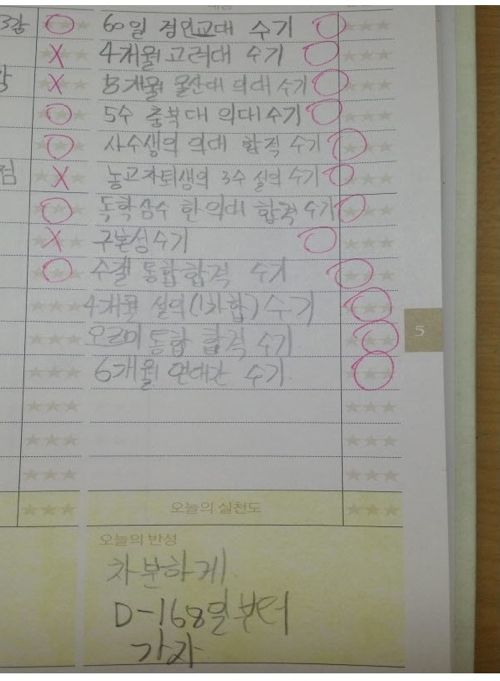 3강 60일 경인교대 수기
4개월 고려대 수기
8개월 울산대 의대 수기
5수 충북대 의대 수기
사수생의 의대 합격 수기
점 농고자퇴생의 3수 설의 수기
독학삼수 한의대 합격수기
구본성수기
수갤 통합합격 수기
4개월 설의(1차합) 수기
오르비 통합 합격 수기
6개월 연대간 수기
5
오늘의 실천도
오늘의 반성
차분하게
D-168일부터
가자